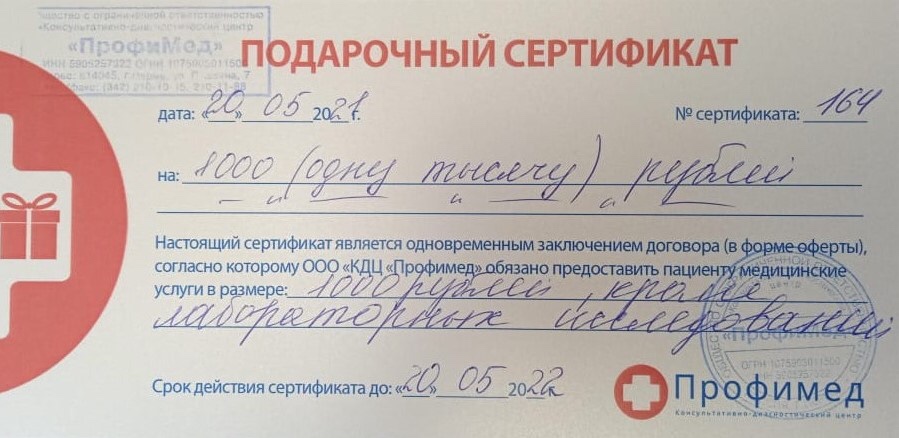 Общество с ограниченной ответственностью
«Консультативно-диагностический центр
«ПрофиМед»
ИНН 5905257322 ОГРН 1075905011500
614045, г. Пермь, ул. 7
(342) 210-10-15,
ПОДАРОЧНЫЙ СЕРТИФИКАТ
дата: «20» 05 2021 г. № сертификата: 164
на: 1000 (одну тысячу) рублей
Настоящий сертификат является одновременным заключением договора (в форме оферты),
согласно которому ООО «КДЦ «Профимед» обязано предоставить пациенту медицинские
услуги в размере: 1000 рублей кроме
лабораторных исследований
«ПрофиМед»
ОГРН 1075905011500
ИНН 5905257322
Срок действия сертификата до: «20» 05 2022г.
Профимед
Консультативно-диагностический центр